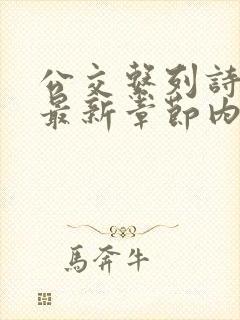 公交繫列詩
最新章節內
馬奔牛